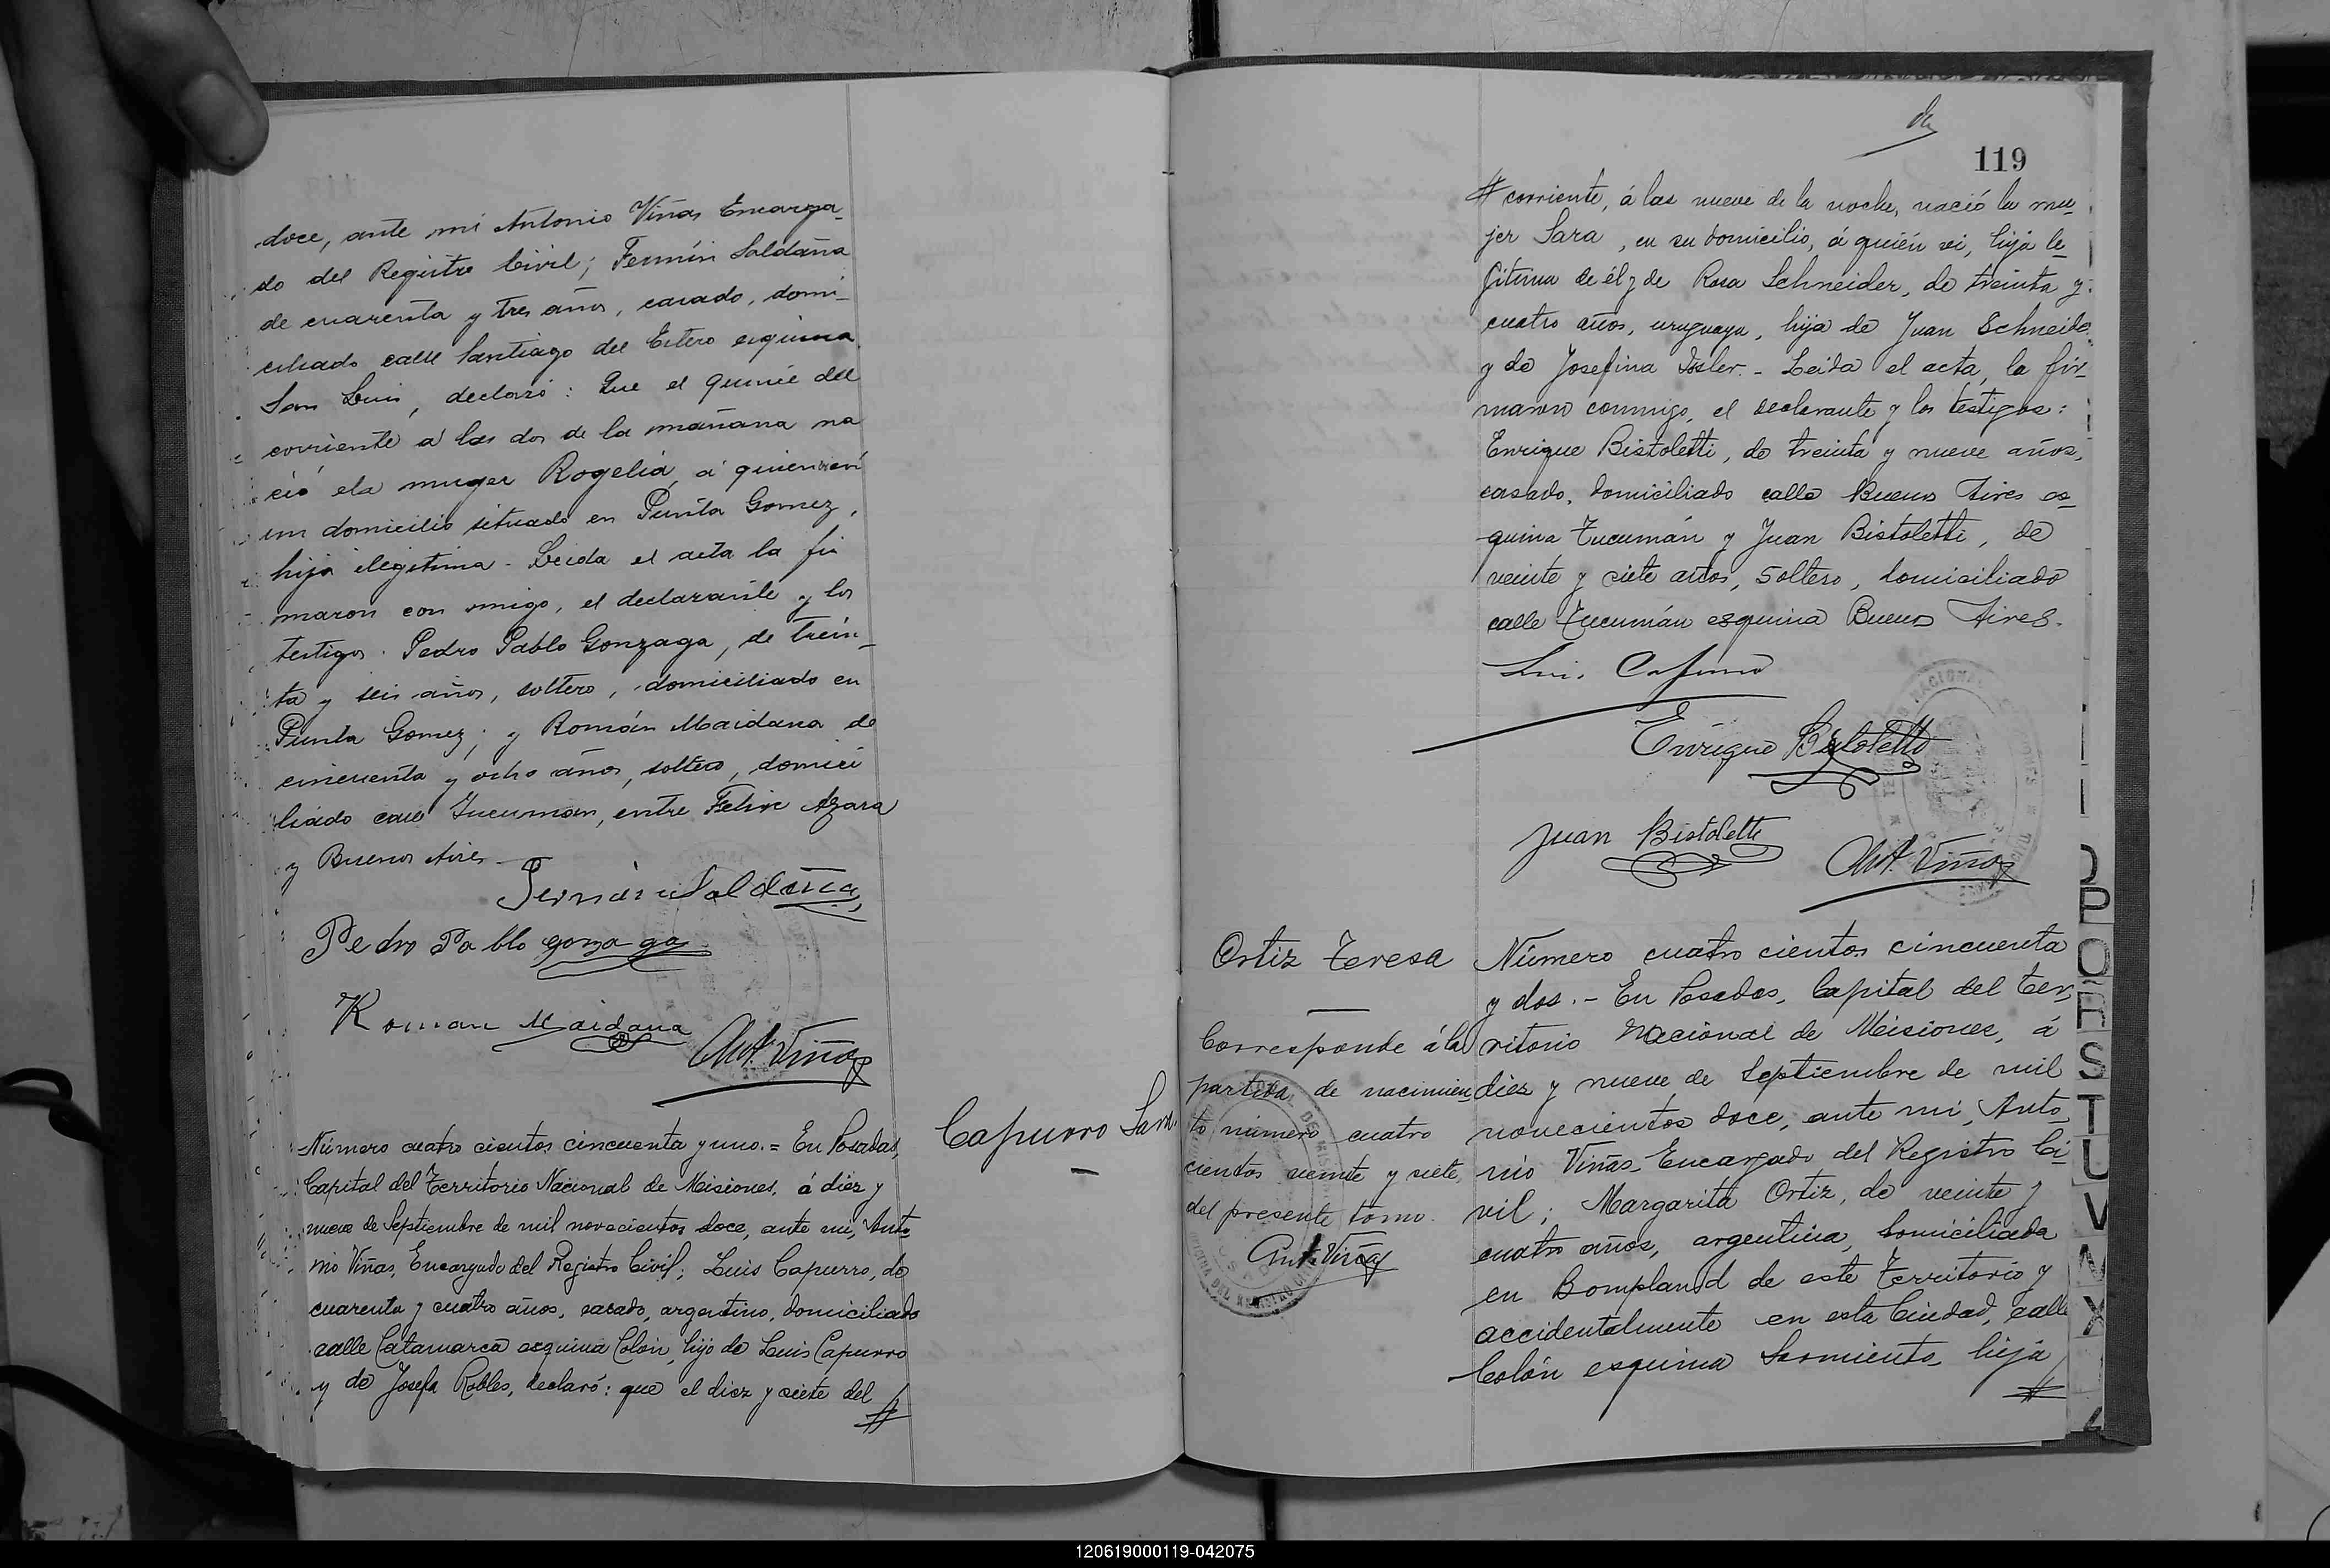 doce, ante mi Antonio Viñas Encarga-
do del Registro Civil; Fermín Saldaña
de cuarenta y tres años, casado, domi-
ciliado calle Santiago del Estero esquina
San Luis, declaró: Que el quince del
corriente a las dos de la mañana na
ció ela muger Rogelia, á quien
un domicilio situado en Punta Gomez,
hija ilegitima - Leida el acta la fir
maron con migo, el declarante y los
testigos. Pedro Pablo Gonzaga, de trein-
ta y seis años, soltero, domiciliado en
Punta Gomez; y Román Maidana de
cincuenta y ocho años, soltero, domici
liado calle Tucuman, entre Felix Azara
y Buenos Aires -
Fermín Saldaña
Pedro Pablo gonzaga
Roman Maidana
Ant. Viñas
Número cuatro cientos cincuenta y uno. = En Posadas,
Capital del Territorio Nacional de Misiones, á diez y
nueve de Septiembre de mil novecientos doce, ante mi, Anto-
nio Viñas, Encargado del Registro Civil; Luis Capurro, de
cuarenta y cuatro años, casado, argentino, domiciliado
calle Catamarca esquina Colón, hijo de Luis Capurro
y de Josefa Robles, declaró: que el diez y siete del #
Capurro Sara
119
# corriente, á las nueve de la noche, nació la mu-
jer Sara, en su domicilio, á quién vi, hija le-
gitima de él y de Rosa Schneider, de treinta y
cuatro años, uruguaya, hija de Juan Schneider
y de Josefina Isler. - Leida el acta, la fir-
maron conmigo, el declarante y los testigos:
Enrique Bistoletti, de treinta y nueve años,
casado, domiciliado calle Buenos Aires es-
quina Tucumán y Juan Bistoletti, de
veinte y siete años, soltero, domiciliado
calle Tucumán esquina Buenos Aires.
Luis Capurro
Enrique Bistoletti
Juan Bistoletti
Ant. Viñas
Ortiz Teresa
Corresponde á la
partida de nacimien-
to número cuatro
cientos veinte y siete,
del presente tomo.
Ant. Viñas
Número cuatro cientos cincuenta
y dos. - En Posadas, Capital del Ter-
ritorio Nacional de Misiones, á
diez y nueve de Septiembre de mil
novecientos doce, ante mi, Anto-
nio Viñas, Encargado del Registro Ci-
vil; Margarita Ortiz, de veinte y
cuatro años, argentina, domiciliada
en Bompland de este Territorio y
accidentalmente en esta Ciudad, calle
Colón esquina Sarmiento, hija #
O
P
Q
R
S
T
U
V
X
120619000119-042075